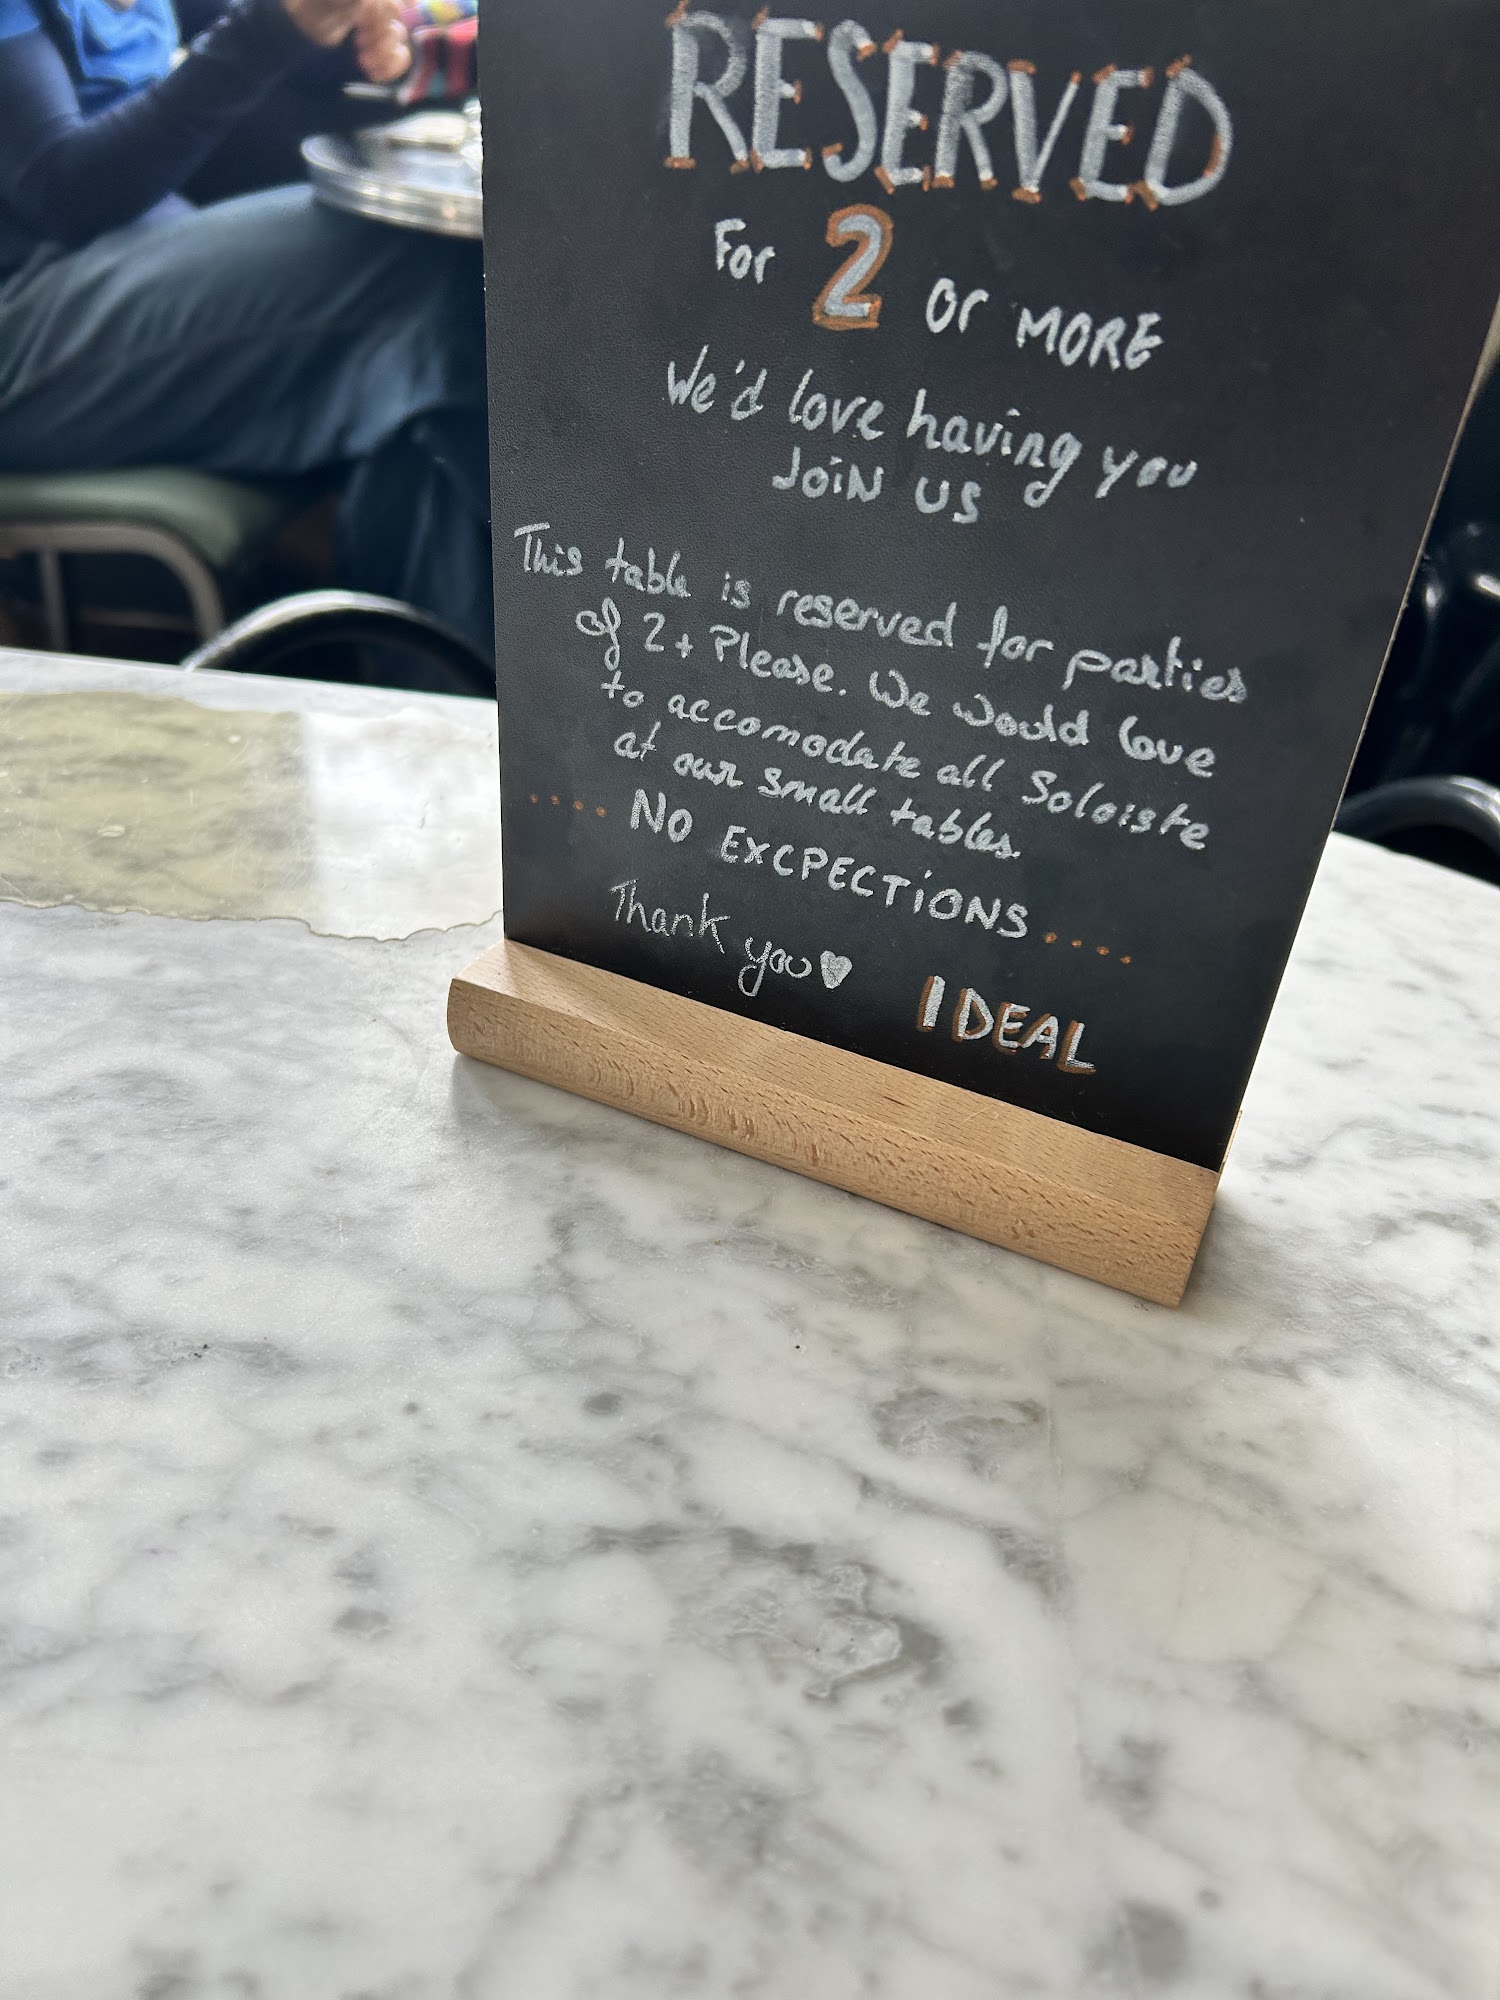 RESERVED
For 2 or MORE
We'd love having you
JOIN US
This table is reserved for parties
of 2+ Please. We would love
to accomodate all Soloiste
at our small tables.
.... NO EXCPECTIONS ....
Thank you♥
IDEAL